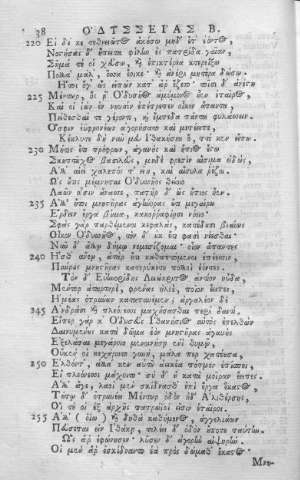 38 ΟΔΥΣΣΕΙΑΣ Β.
220 Εἰ δέ κε τεθνειῶτ@ ἀκέσω μηδ' ἔτ' ἐόντ@,
Νοςήσας δ' ἔπειτα φίλην ἐς πατρίδα γαῖαν,
Σῆμά τέ οἱ χεύσω, ἐπὶ κτέρεα κτερεΐξω
Πολλὰ μάλ', ὅσσα ἔοικε· ἀνέρι μητέρα δώσω.
Ἤτοι ὅγ' ὣς εἰπὼν κατ' ἄρ' ἕζετο· τοῖσι δ' ἀνέςη
225 Μέντωρ, ὅς ῥ' Ὀδυσῆ@ ἀμύμον@ ἦεν ἑταῖρ@,
Καί οἱ ἰὼν ἐν νηυσὶν ἐπέτρεπεν οἶκον ἅπαντα,
Πείθεσθαί τε γέροντι, ἔμπεδα πάντα φυλάσσειν.
Ὅσφιν ἐυφρονέων ἀγορήσατο καὶ μετέειπε,
Κέκλυτε δὴ νῦν μευ Ἰθακήσιοι ὅ, ττι κεν εἴπω.
230 Μή τις ἔτι πρόφρων, ἀγανὸς καὶ ἤπι@ ἔςω
Σκηπτᾶχ@ βασιλεὺς, μηδὲ φρεσὶν αἴσιμα εἰδώς,
Ἀλλ' αἰεὶ χαλεπός τ' εἴη, καὶ αἴσυλα ῥέζοι.
Ὡς ὔτις μέμνηται Ὀδυσσῆ@ θείοιο
Λαῶν οἷσιν ἄνασσε, πατὴρ δ' ὣς ἤπι@ ἦεν.
235 Ἀλλ' ἤτοι μνηςῆρας ἀγήνορας ὔτι μεγαίρω
Ἔρδειν ἔργα βίαια, κακορραφίῃσι νόοιο·
Σφὰς γὰρ παρθέμενοι κεφαλὰς, κατέδυσι βιαίως
Οἶκον Ὀδυσσῆ@, τὸν δ' ἐκ ἔτι φασὶ νέεσθαι·
Νῦν δ' ἄλλῳ δήμῳ νεμεσίζομαι· οἷον ἅπαντες
240 Ἧσθ' ἄνεῳ, ἀτὰρ ὔτι καθαπτόμενοι ἐπέεσσι,
Παύρυς μνηςῆρας κατερύκετε πολλοὶ ἐόντες.
Τὸν δ' Εὐηνορίδης Λειώκριτ@ ἀντίον ηὔδα,
Μέντορ ἀταρτηρὲ, φρένας ἠλεὲ, ποῖον ἔειπες,
Ἡμέας ὀτρύνων καταπαυέμεν; ἀργαλέον δὲ
245 Ἀνδράσι πλεόνεσσι μαχήσασθαι περὶ δαιτί.
Εἴπερ γάρ κ' Ὀδυσεὺς Ἰθακήσι@ αὐτὸς ἐπελθὼν
Δαινυμένυς κατὰ δῶμα ἑὸν μνηςῆρας ἀγανὺς
Ἐξελάσαι μεγάροιο μενοινήσει' ἐνὶ θυμῷ,
Οὔκέν οἱ κεχάροιτο γυνὴ, μάλα περ χατέυσα,
250 Ἐλθόντ', ἀλλά κεν αὐτῦ ἀεικέα πότμον ἐπίσποι,
Εἰ πλεόνεσσι μάχοιτο· σὺ δ' ὐ κατὰ μοῖραν ἔειπες.
Ἀλλ' ἄγε, λαοὶ μὲν σκίδνασθ' ἐπὶ ἔργα ἕκας@,
Τύτῳ δ' ὀτρυνέει Μέντωρ ὁδὸν ἠδ' Ἁλιθέρσης,
Οἵ τε οἱ ἐξ ἀρχῆς πατρώϊοί εἰσιν ἑταῖροι.
255 Ἀλλ' (οἴω) δηθὰ καθήμεν@, ἀγγελιάων
Πεύσεται εἰν Ἰθάκῃ, τελέει δ' ὁδὸν ὔποτε ταύτην.
Ὣς ἄρ' ἐφώνησεν· λῦσεν δ' ἀγορὴν αἰψηρήν.
Οἱ μὲν ἄρ' ἐσκίδναντο ἑὰ πρὸς δώμαθ' ἕκας@·
Μνη-